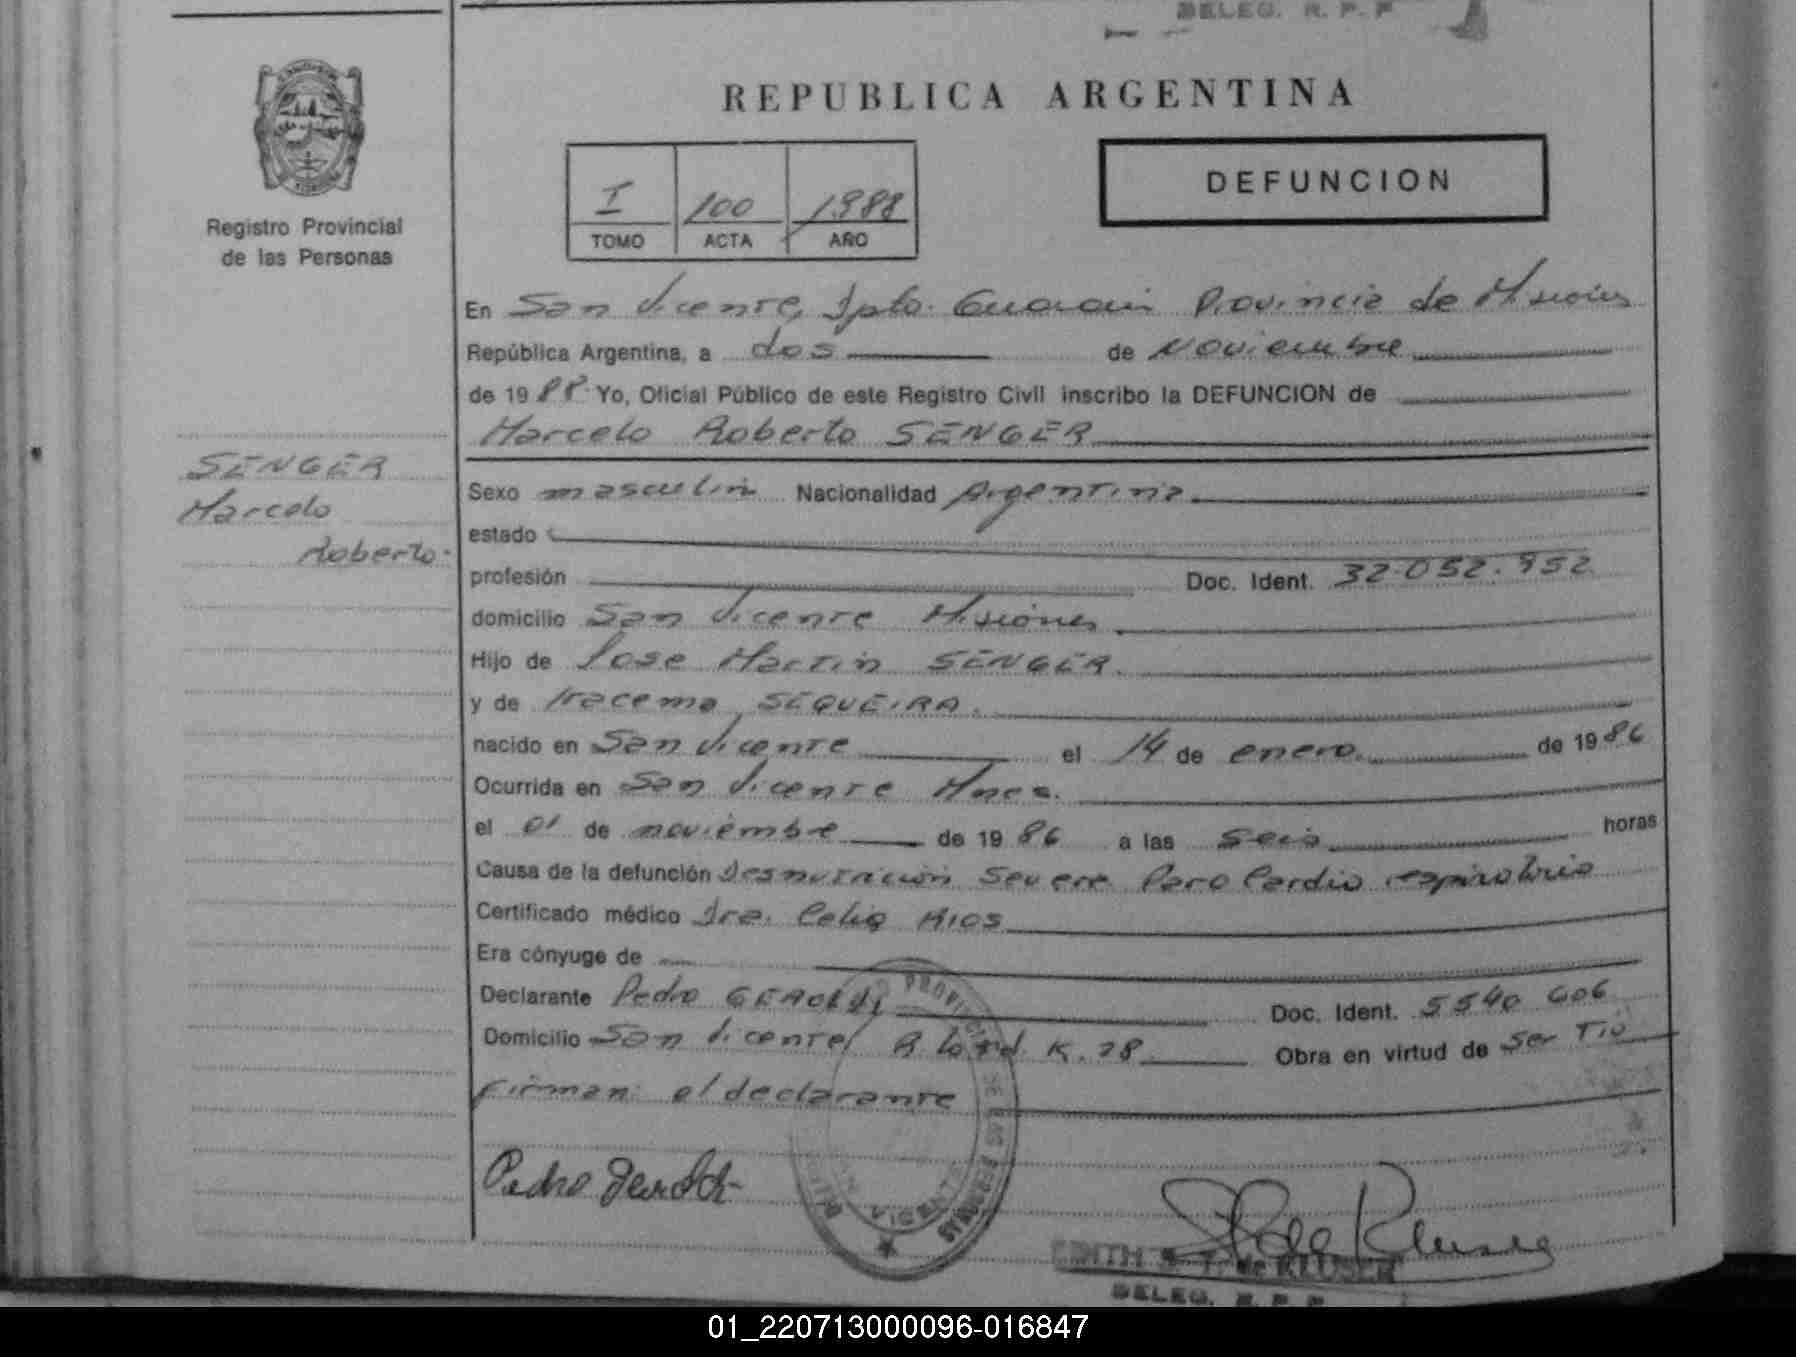 DELEG. R. P. P
REPUBLICA ARGENTINA
DEFUNCION
I 100 1988
TOMO ACTA AÑO
Registro Provincial
de las Personas
En San Vicente, Dpto. Guarani Provincia de Misiones
República Argentina, a dos de Noviembre
de 1988 Yo, Oficial Público de este Registro Civil inscribo la DEFUNCION de
Marcelo Roberto SENGER
SENGER
Marcelo
Roberto.
Sexo masculin Nacionalidad Argentina
estado
profesión Doc. Ident. 32.052.952
domicilio San Vicente Misiones
Hijo de Jose Martin SENGER.
y de Iracema SEQUEIRA.
nacido en San Vicente el 14 de enero. de 1986
Ocurrida en San Vicente Mnes.
el 01 de noviembre de 1986 a las seis horas
Causa de la defunción Desnutricion Severe Paro Cardio respiratorio
Certificado médico Dra. Celia RIOS
Era cónyuge de
Declarante Pedro Doc. Ident. 5540 606
Domicilio San Vicente, K. 78 Obra en virtud de Ser Tio
Firman: el declarante
Pedro
VICENTE
EDITH de KLUSER
DELEG. R. P. P
01_220713000096-016847